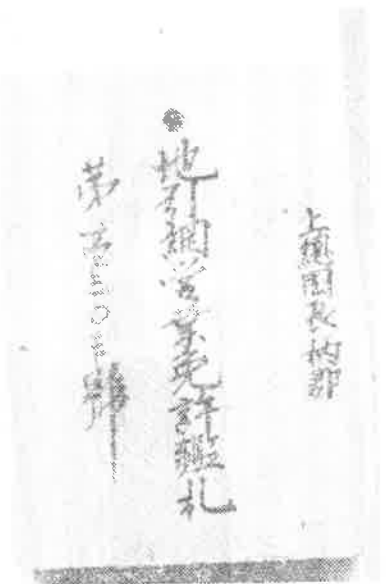 上總国長柄郡
地引網営業免許鑑札
第五三〇三號